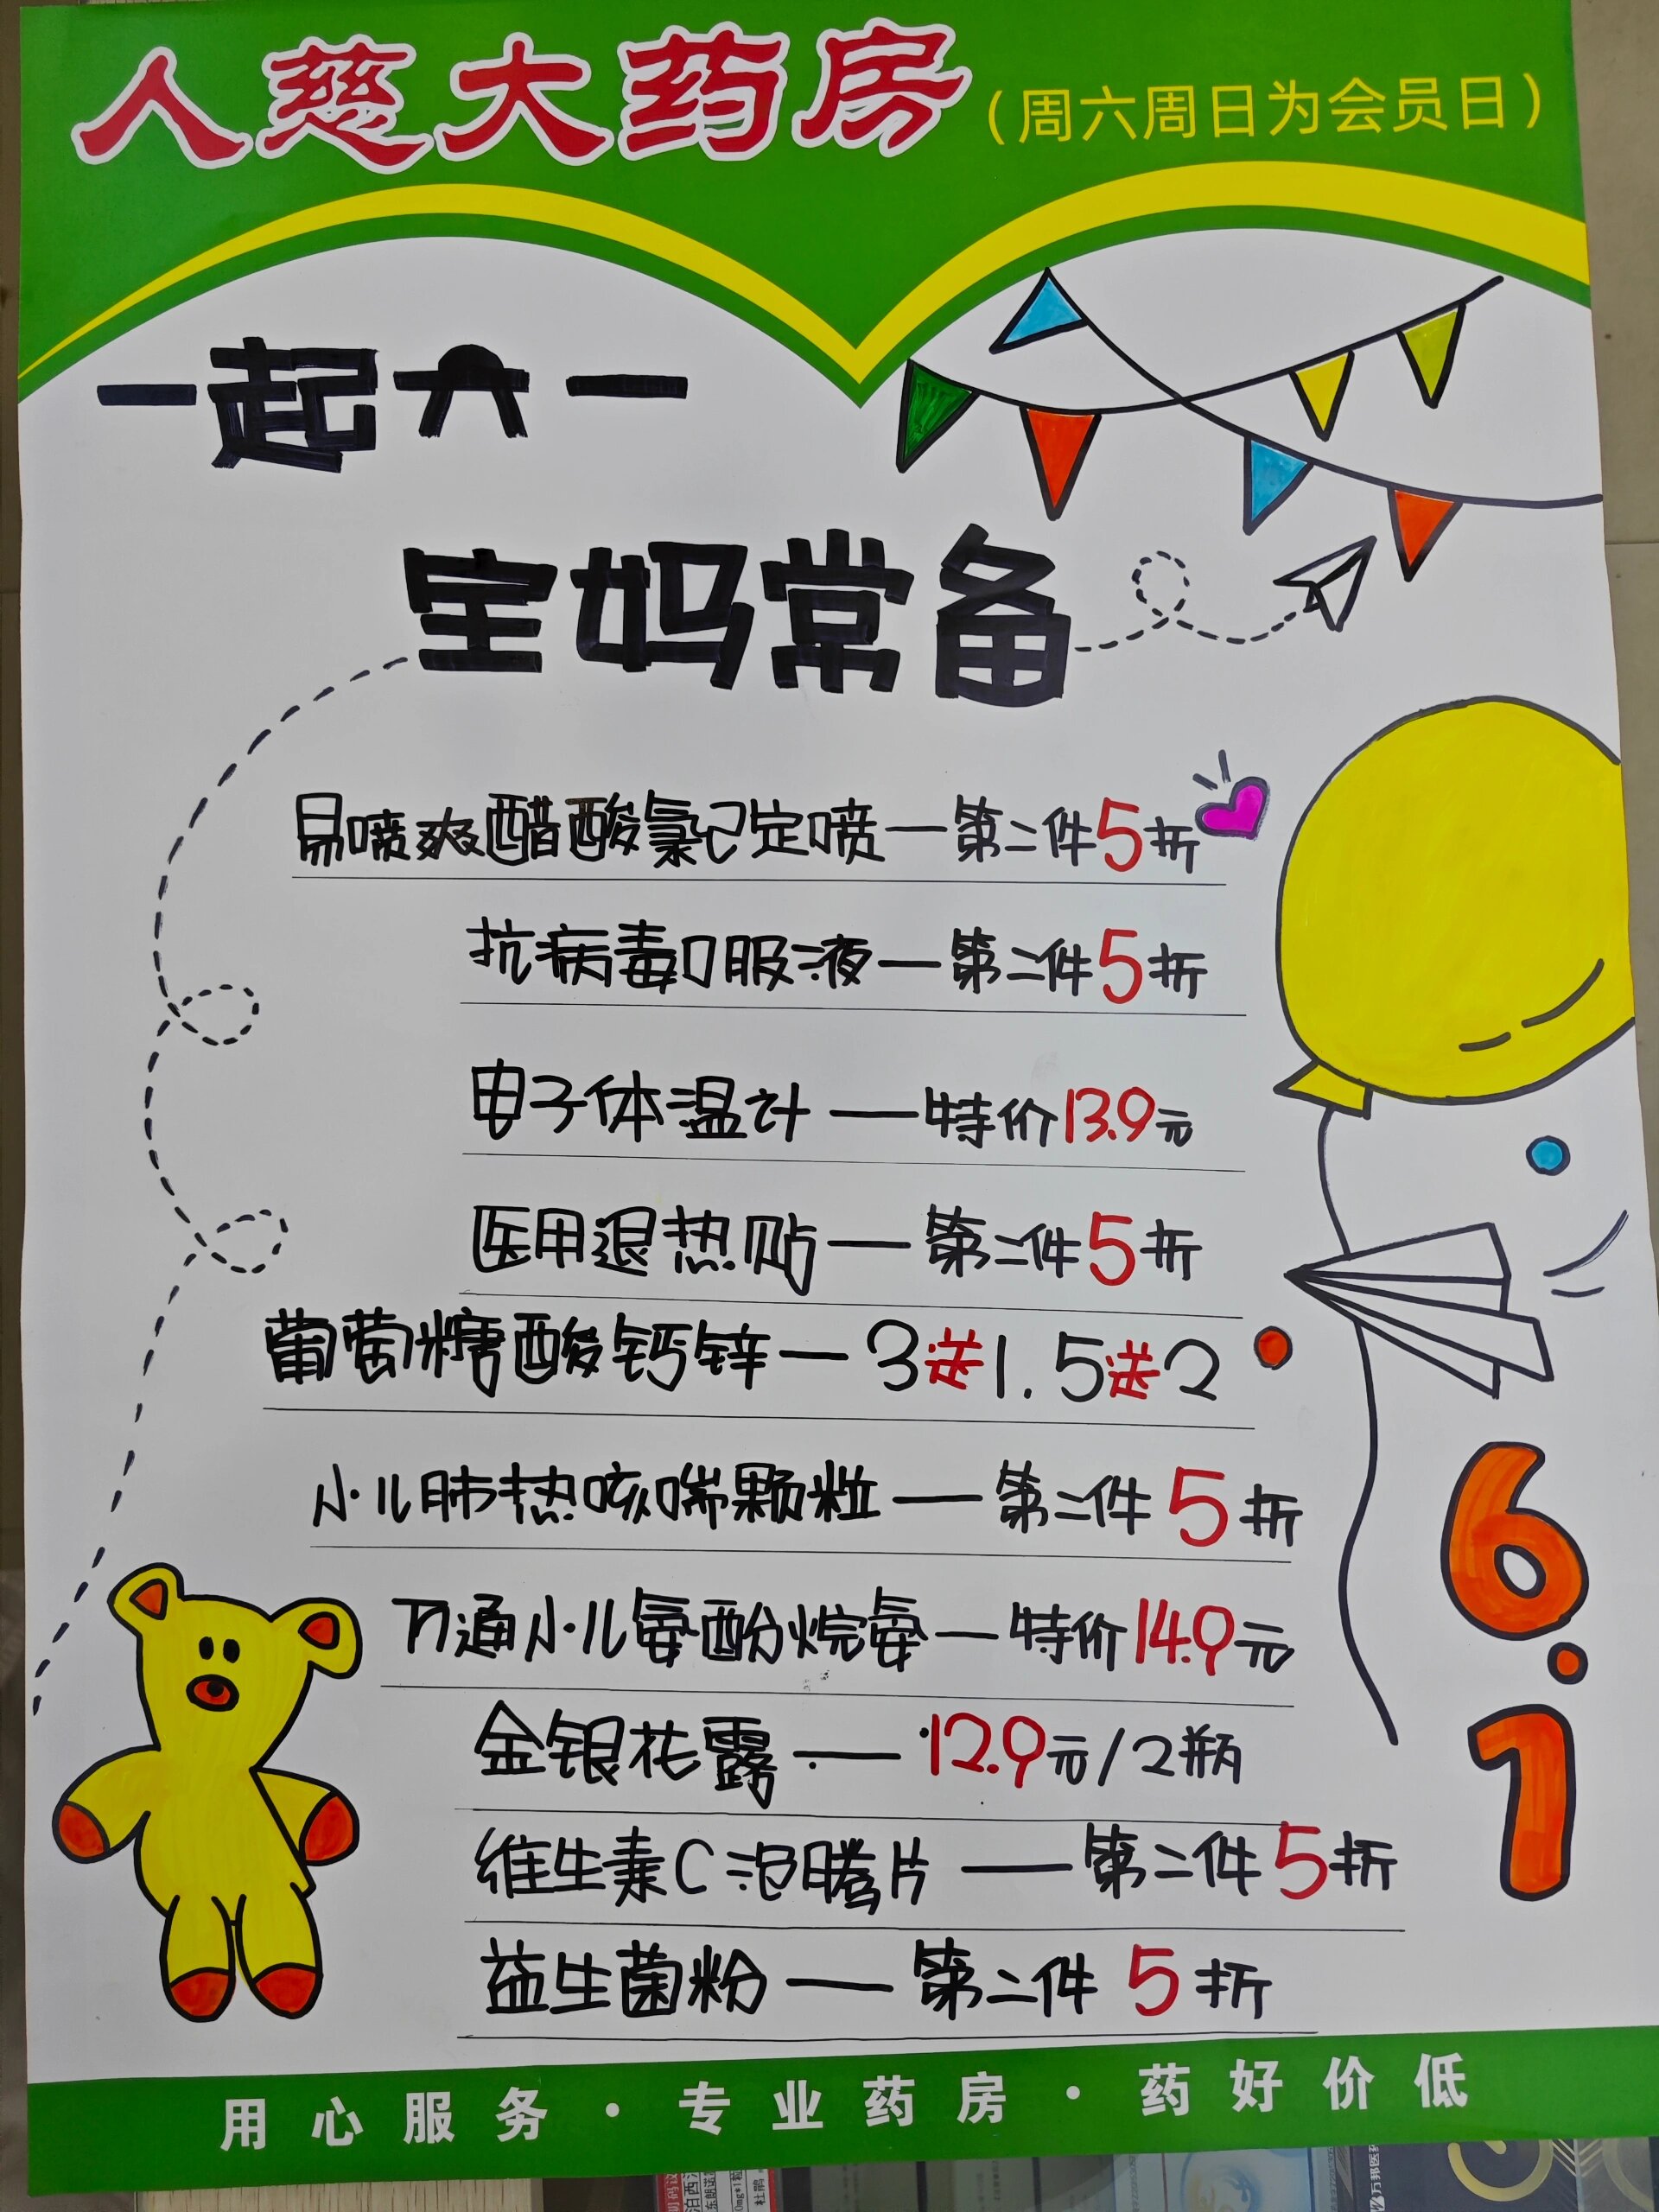 人慈大药房（周六周日为会员日）
一起六一
宝妈常备
易喷爽醋酸氯己定喷—第二件5折
抗病毒口服液—第二件5折
电子体温计—特价13.9元
医用退热贴—第二件5折
葡萄糖酸钙锌—3送1.5送2
小儿肺热咳喘颗粒—第二件5折
万通小儿氨酚烷氨—特价14.9元
金银花露—12.9元/2瓶
维生素C泡腾片—第二件5折
益生菌粉—第二件5折
6.1
用心服务·专业药房·药好价低